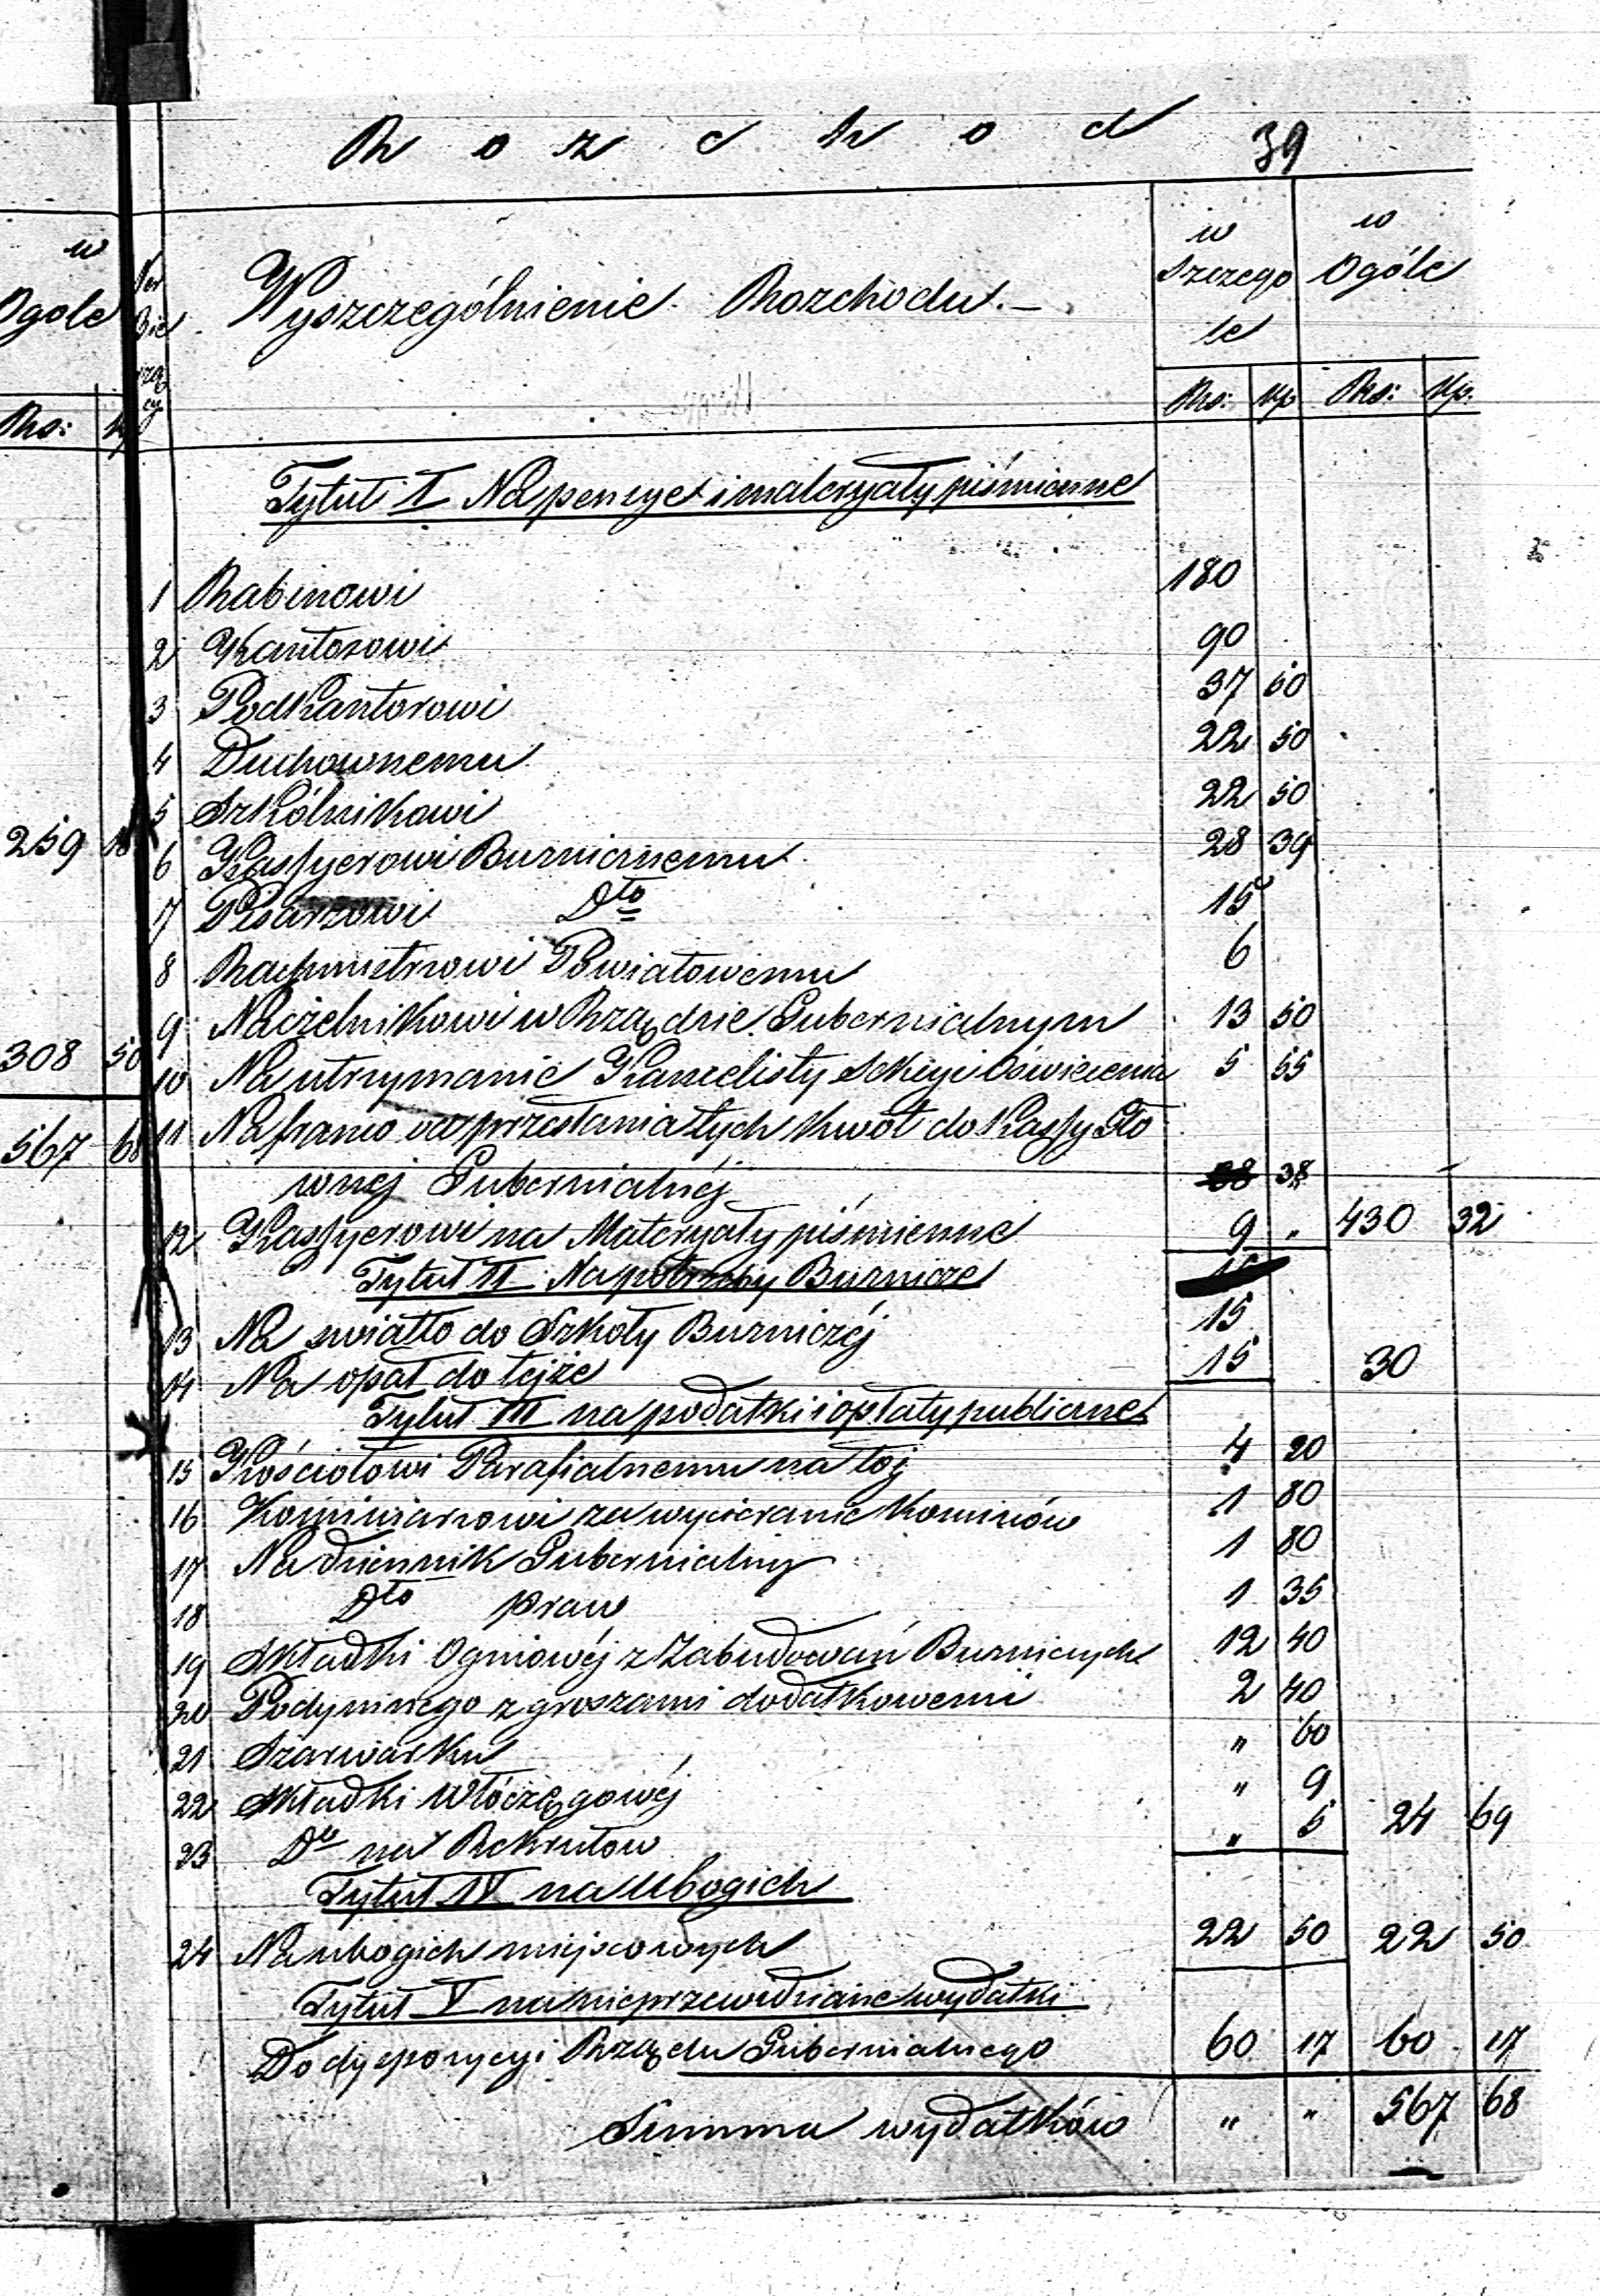 Rozchod 39
w Ogole
Ner Bie rzą cy
Wyszczególnienie Rozchodu.—
w Szczegole
w Ogóle
Rs: Rs: Kp Rs: Kp.
Tytuł I Na pensye i materyały piśmienne
1 Rabinowi 180
2 Kantorowi 90
3 PodKantorowi 37 50
4 Duchownemu 22 50
5 Szkólnikowi 22 50
259 18
6 Kassyerowi Bużnicznemu 28 39
7 Pisarzowi Dto 15
8 Rachmistrzowi Powiatowemu 6
9 Naczelnikowi w Rządzie Gubernialnym 13 50
308 50
10 Na utrzymanie Kancelisty Sekcyi Oświecenia 5 55
567 68
11 Na franco od przesłania tych Kwot do Kassy Głó
wnej Gubernialnéj 38
12 Kassyerowi na Materyały piśmienne 9 " 430 32
Tytuł II Na potrzeby Bużnicze
13 Na swiatło do Szkoły Bużniczéj 15
14 Na opał do tejże 15 30
Tytuł III na podatki i opłaty publiczne
15 Kościołowi Parafialnemu na łoj 4 20
16 Kominiarzowi za wycieranie Kominów 1 80
17 Na dziennik Gubernialny 1 80
18 Dto praw 1 35
19 Składki Ogniowéj z Zabudowań Bużniczych 12 40
20 Podymnego z groszami dodatkowemi 2 40
21 Szarwarku " 60
22 Składki Włóczęgowéj " 9
23 Dto na Rekrutów " 5 24 69
Tytuł IV na Ubogich
24 Na ubogich miejscowych 22 50 22 50
Tytuł V na nieprzewidziane wydatki
Do dyspozycyi Rządu Gubernialnego 60 17 60 17
Summa wydatków " " 567 68